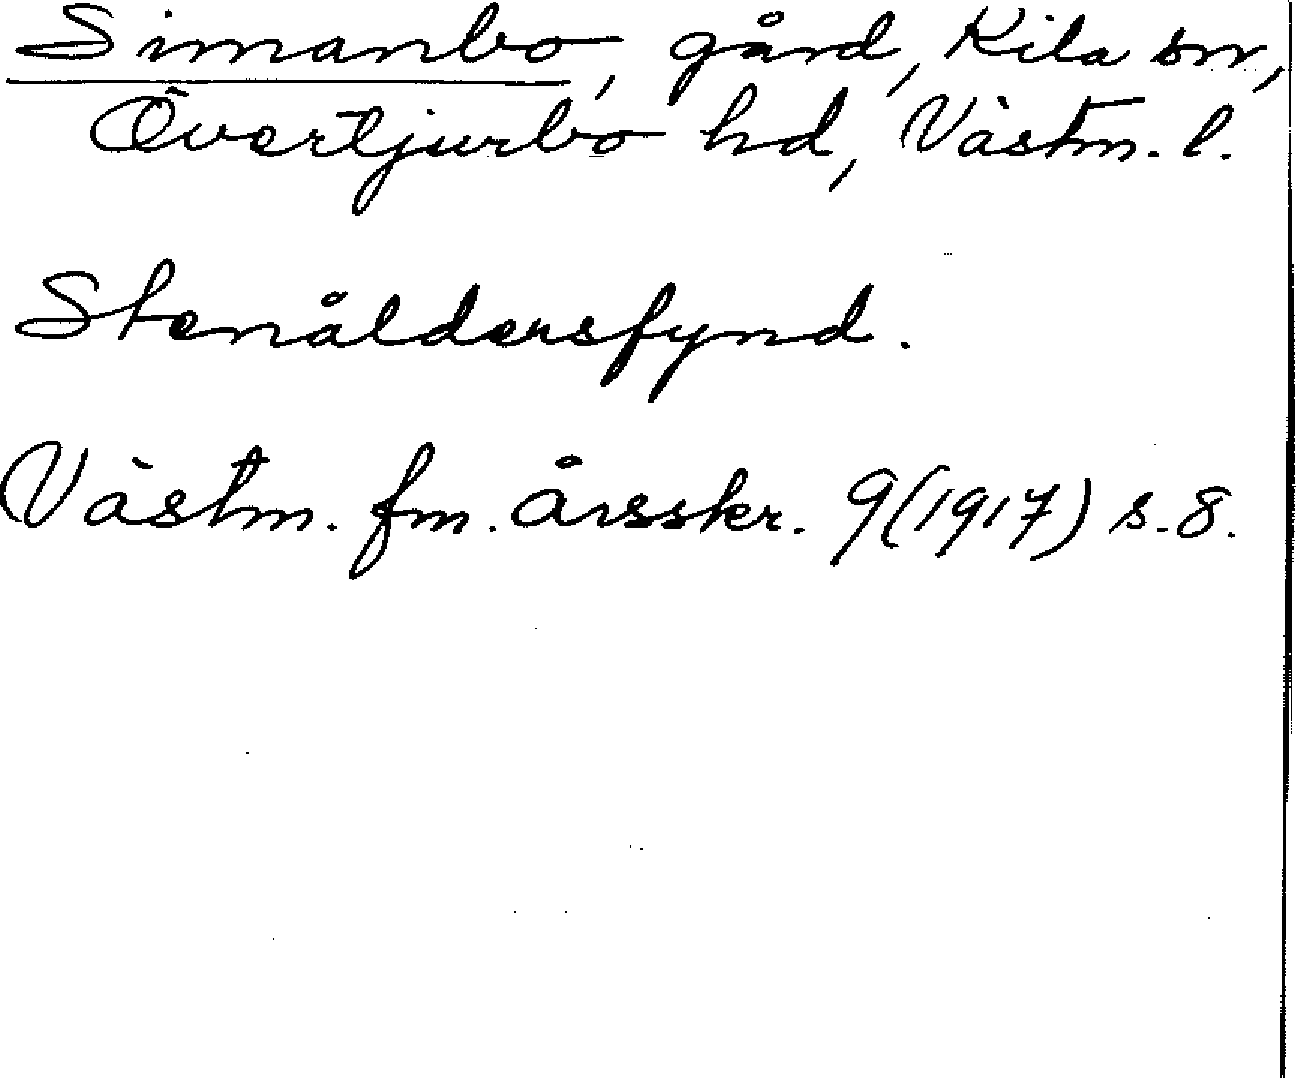 Simanbo, gård, Kila sn,
Övertjurbo hd, Västm. l.
Stenåldersfynd.
Västm. fm. årsskr. 9(1917) s. 8.